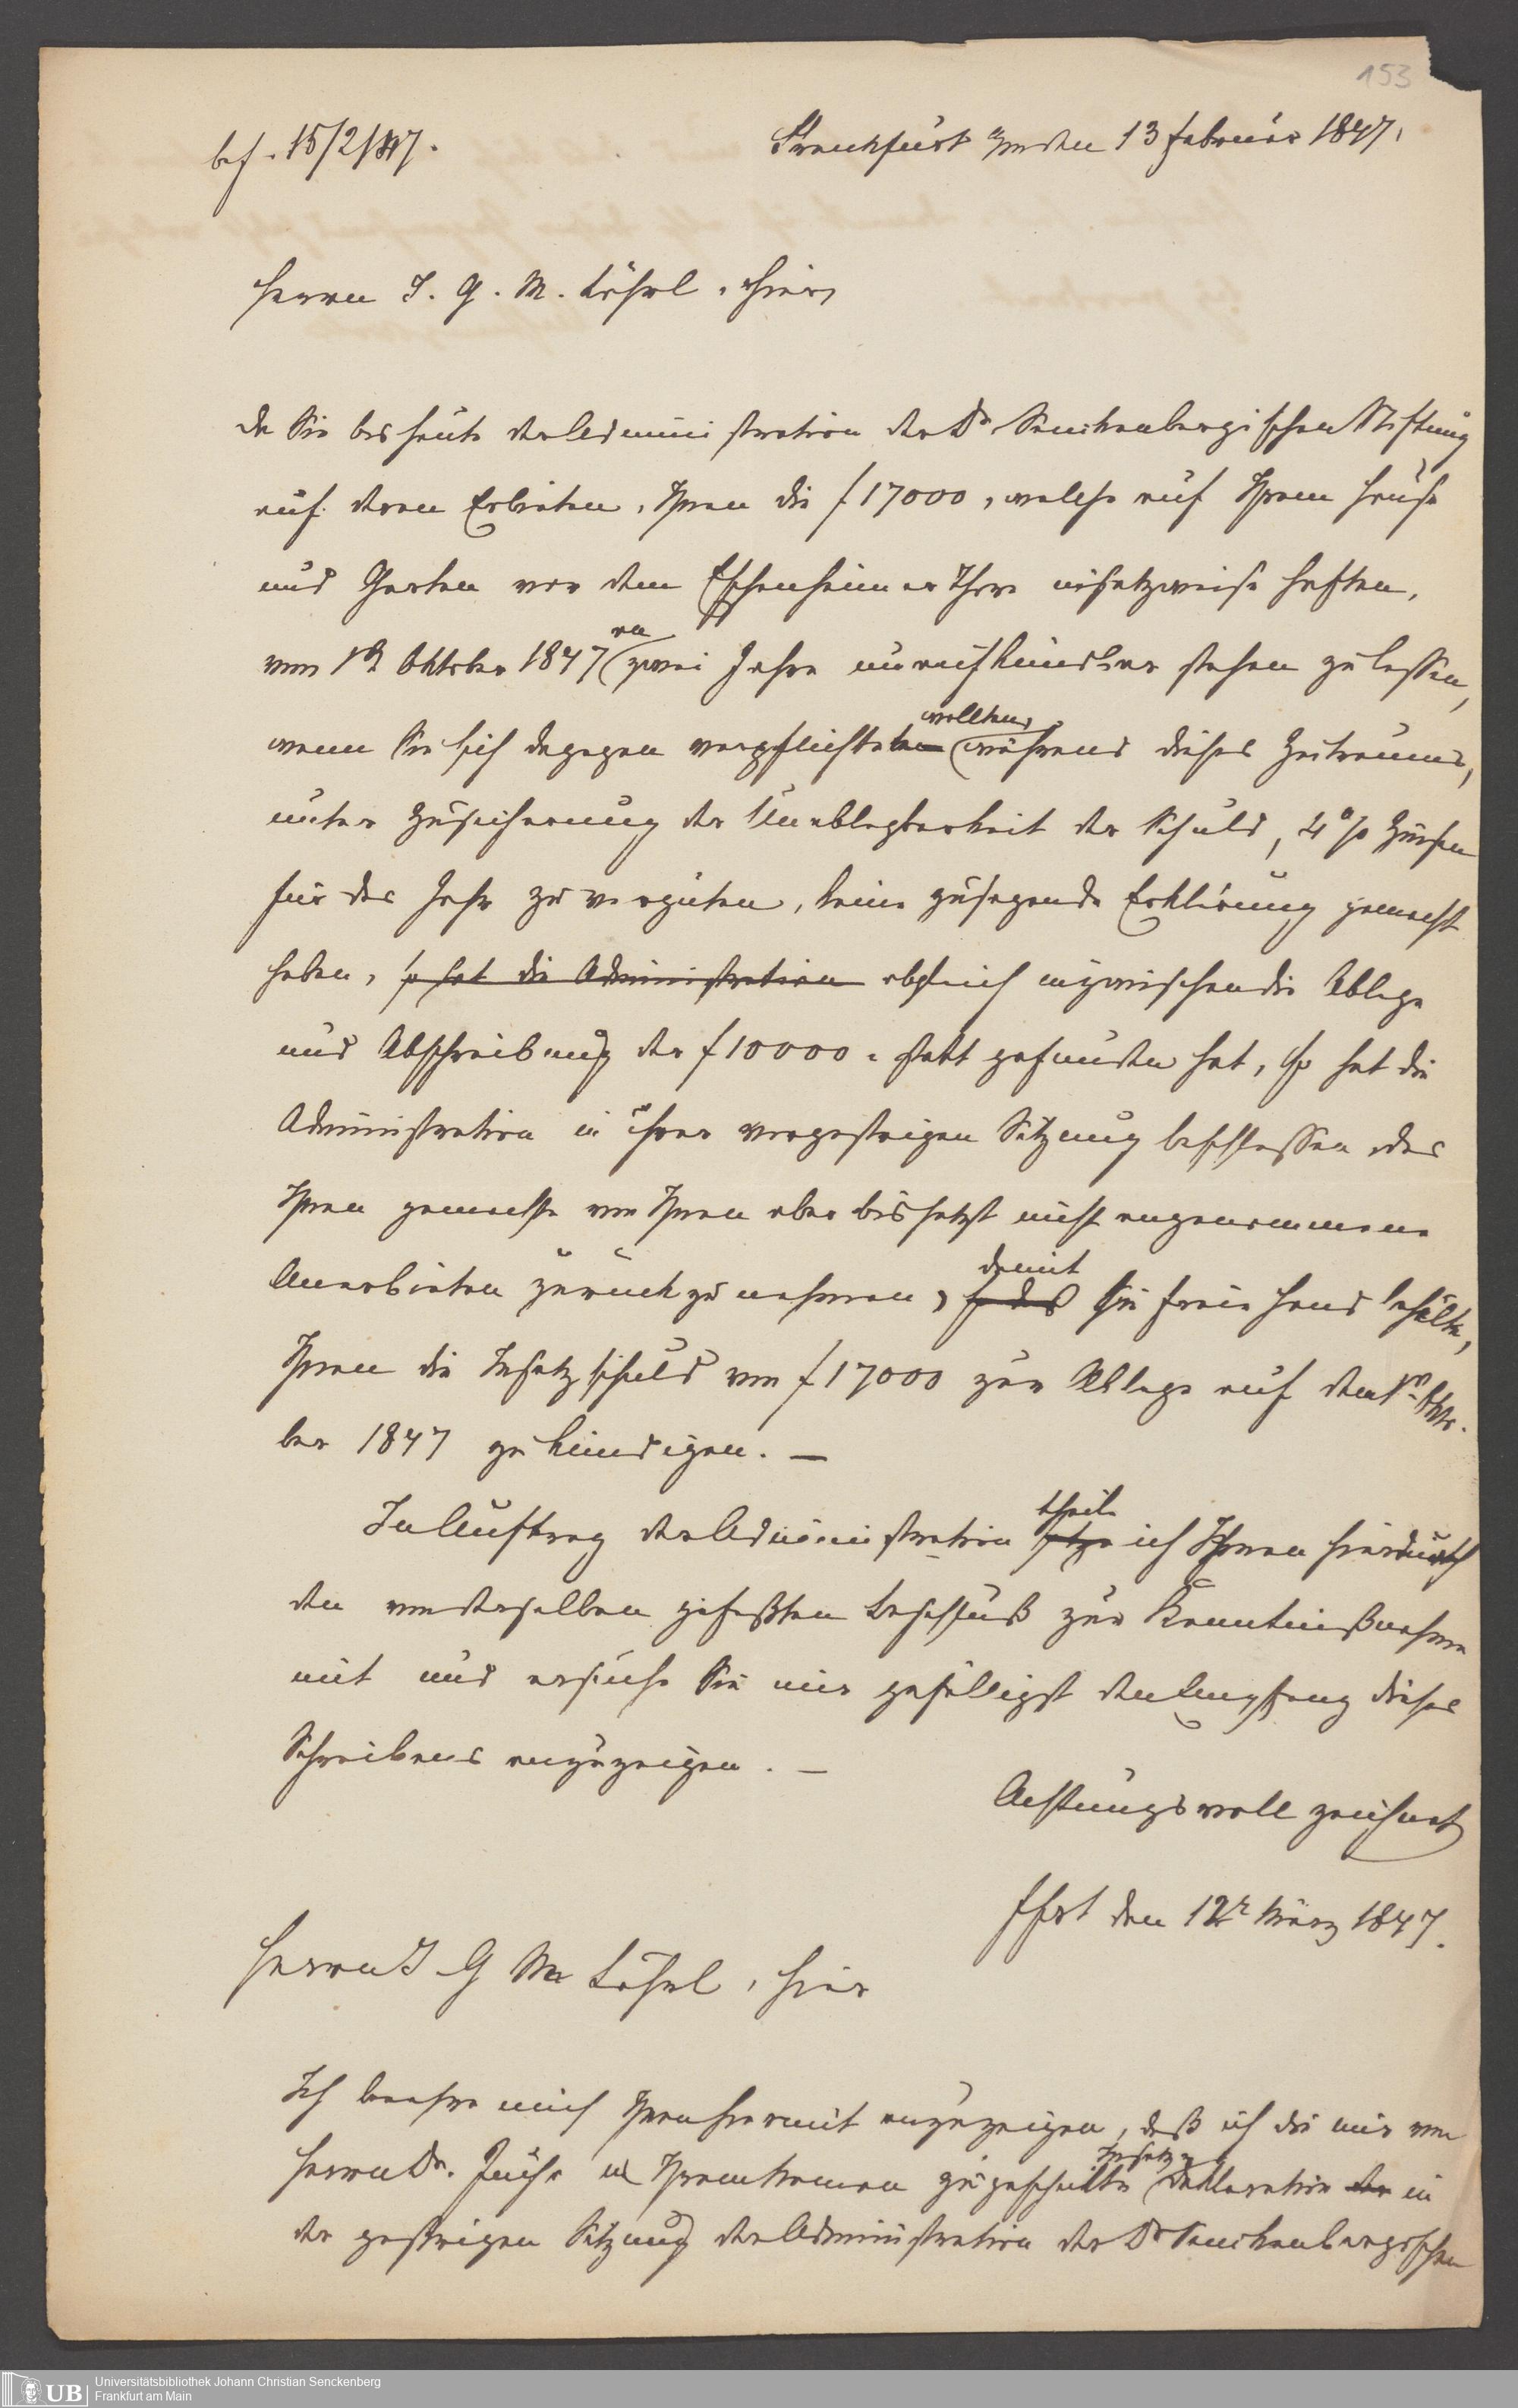 153
bes. 15/2/47.
Frankfurt a/m den 13 Februar 1847.
Herrn J. G. M. Löhrl, hier,
Da Sie bis heute der Administration der Dr Senckenbergischen Stiftung
auf deren Erbieten, Ihnen die f 17000, welche auf Ihrem Hause
und Garten vor dem Eschenheimer Thore insatzweise haften,
vom 1n Oktober 1847 an zwei Jahre unaufkündbar stehen zu lassen,
wenn Sie sich dagegen verpflichten wollten, während dieses Zeitraums,
unter Zusicherung der Unablegbarkeit der Schuld, 4% Zinsen
für das Jahr zu vergüten, keine zusagende Erklärung gemacht
haben, so hat die Administration obgleich inzwischen die Ablage
und Abschreibung der f 10000. statt gefunden hat, so hat die
Administration in ihrer vorgestrigen Sitzung beschlossen das
Ihnen gemachte von Ihnen aber bis jetzt nicht angenommene
Anerbieten zurück zu nehmen, so daß damit sie freie Hand behalte,
Ihnen die Insatzschuld von f 17000 zur Ablage auf den 1n Okto-
ber 1847 zu kündigen. –
Im Auftrag der Administration setze theile ich Ihnen hierdurch
den von derselben gefaßten Beschluß zur Kenntnißnahme
mit und ersuche Sie mir gefälligst den Empfang dieses
Schreibens anzuzeigen. –
Achtungsvoll zeichnet
Ffrt den 12r März 1847.
Herrn J. G. M. Löhrl, hier
Ich beehre mich Ihnen hiermit anzuzeigen, daß ich die mir von
Herrn Dr. Juchо in Ihrem Namen zugeschickte Insatz Deklaration der in
der gestrigen Sitzung der Administration der Dr Senckenbergischen
UB
Universitätsbibliothek Johann Christian Senckenberg
Frankfurt am Main